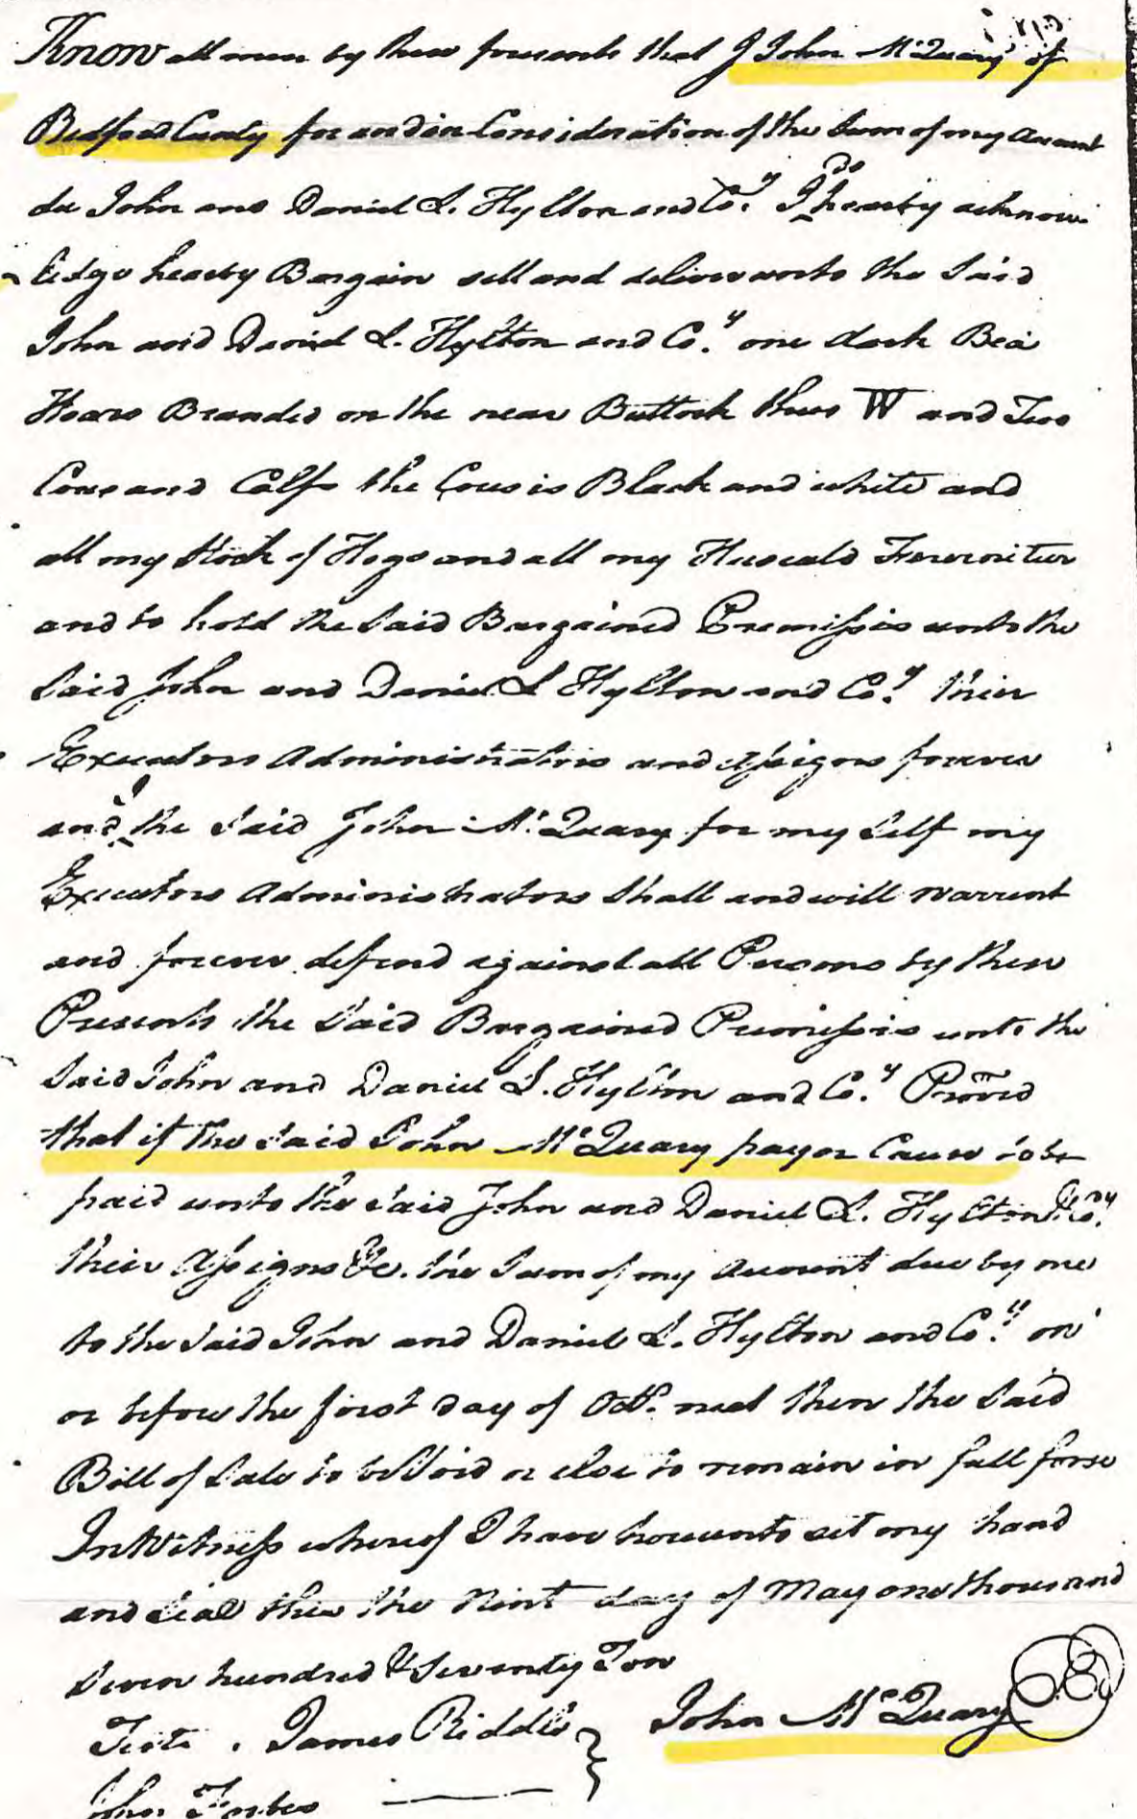 Know all men by these presents that I John McQuary of
Bedford County for and in Consideration of the Sum of my Account
du John and Daniel L. Hylton and Coy. I do hearby acknow
ledge hearby Bargain sell and deliver unto the Said
John and Daniel L. Hylton and Coy. one dark Bea
Hoars Branded on the near Buttock thus W and Two
Cows and Calfs the Cows is Black and white and
all my Stock of Hogs and all my Huseald Fowrnitur
and to hold the Said Bargained Premissis unto the
Said John and Daniel L Hylton and Coy. their
Executors Administrators and Assigns forever
and I the Said John McQuary for my Self my
Executors Administrators Shall and will warrent
and forever defend against all Persons by these
Presents the Said Bargained Premissis unto the
Said John and Daniel L. Hylton and Coy. Provd
that if the Said John McQuary pay or Cause to be
paid unto the Said John and Daniel L. Hylton & Coy.
their Assigns &c. the Sum of my Account due by me
to the Said John and Daniel L. Hylton and Coy. on
or before the first day of Octr. next then the Said
Bill of Sale to be Void or else to remain in full forse
In Witness whereof I have hereunto set my hand
and Seal this the Nint day of May one thousand
Seven hundred & Seventy Two
Teste . James Riddle John McQuary
John Forbes